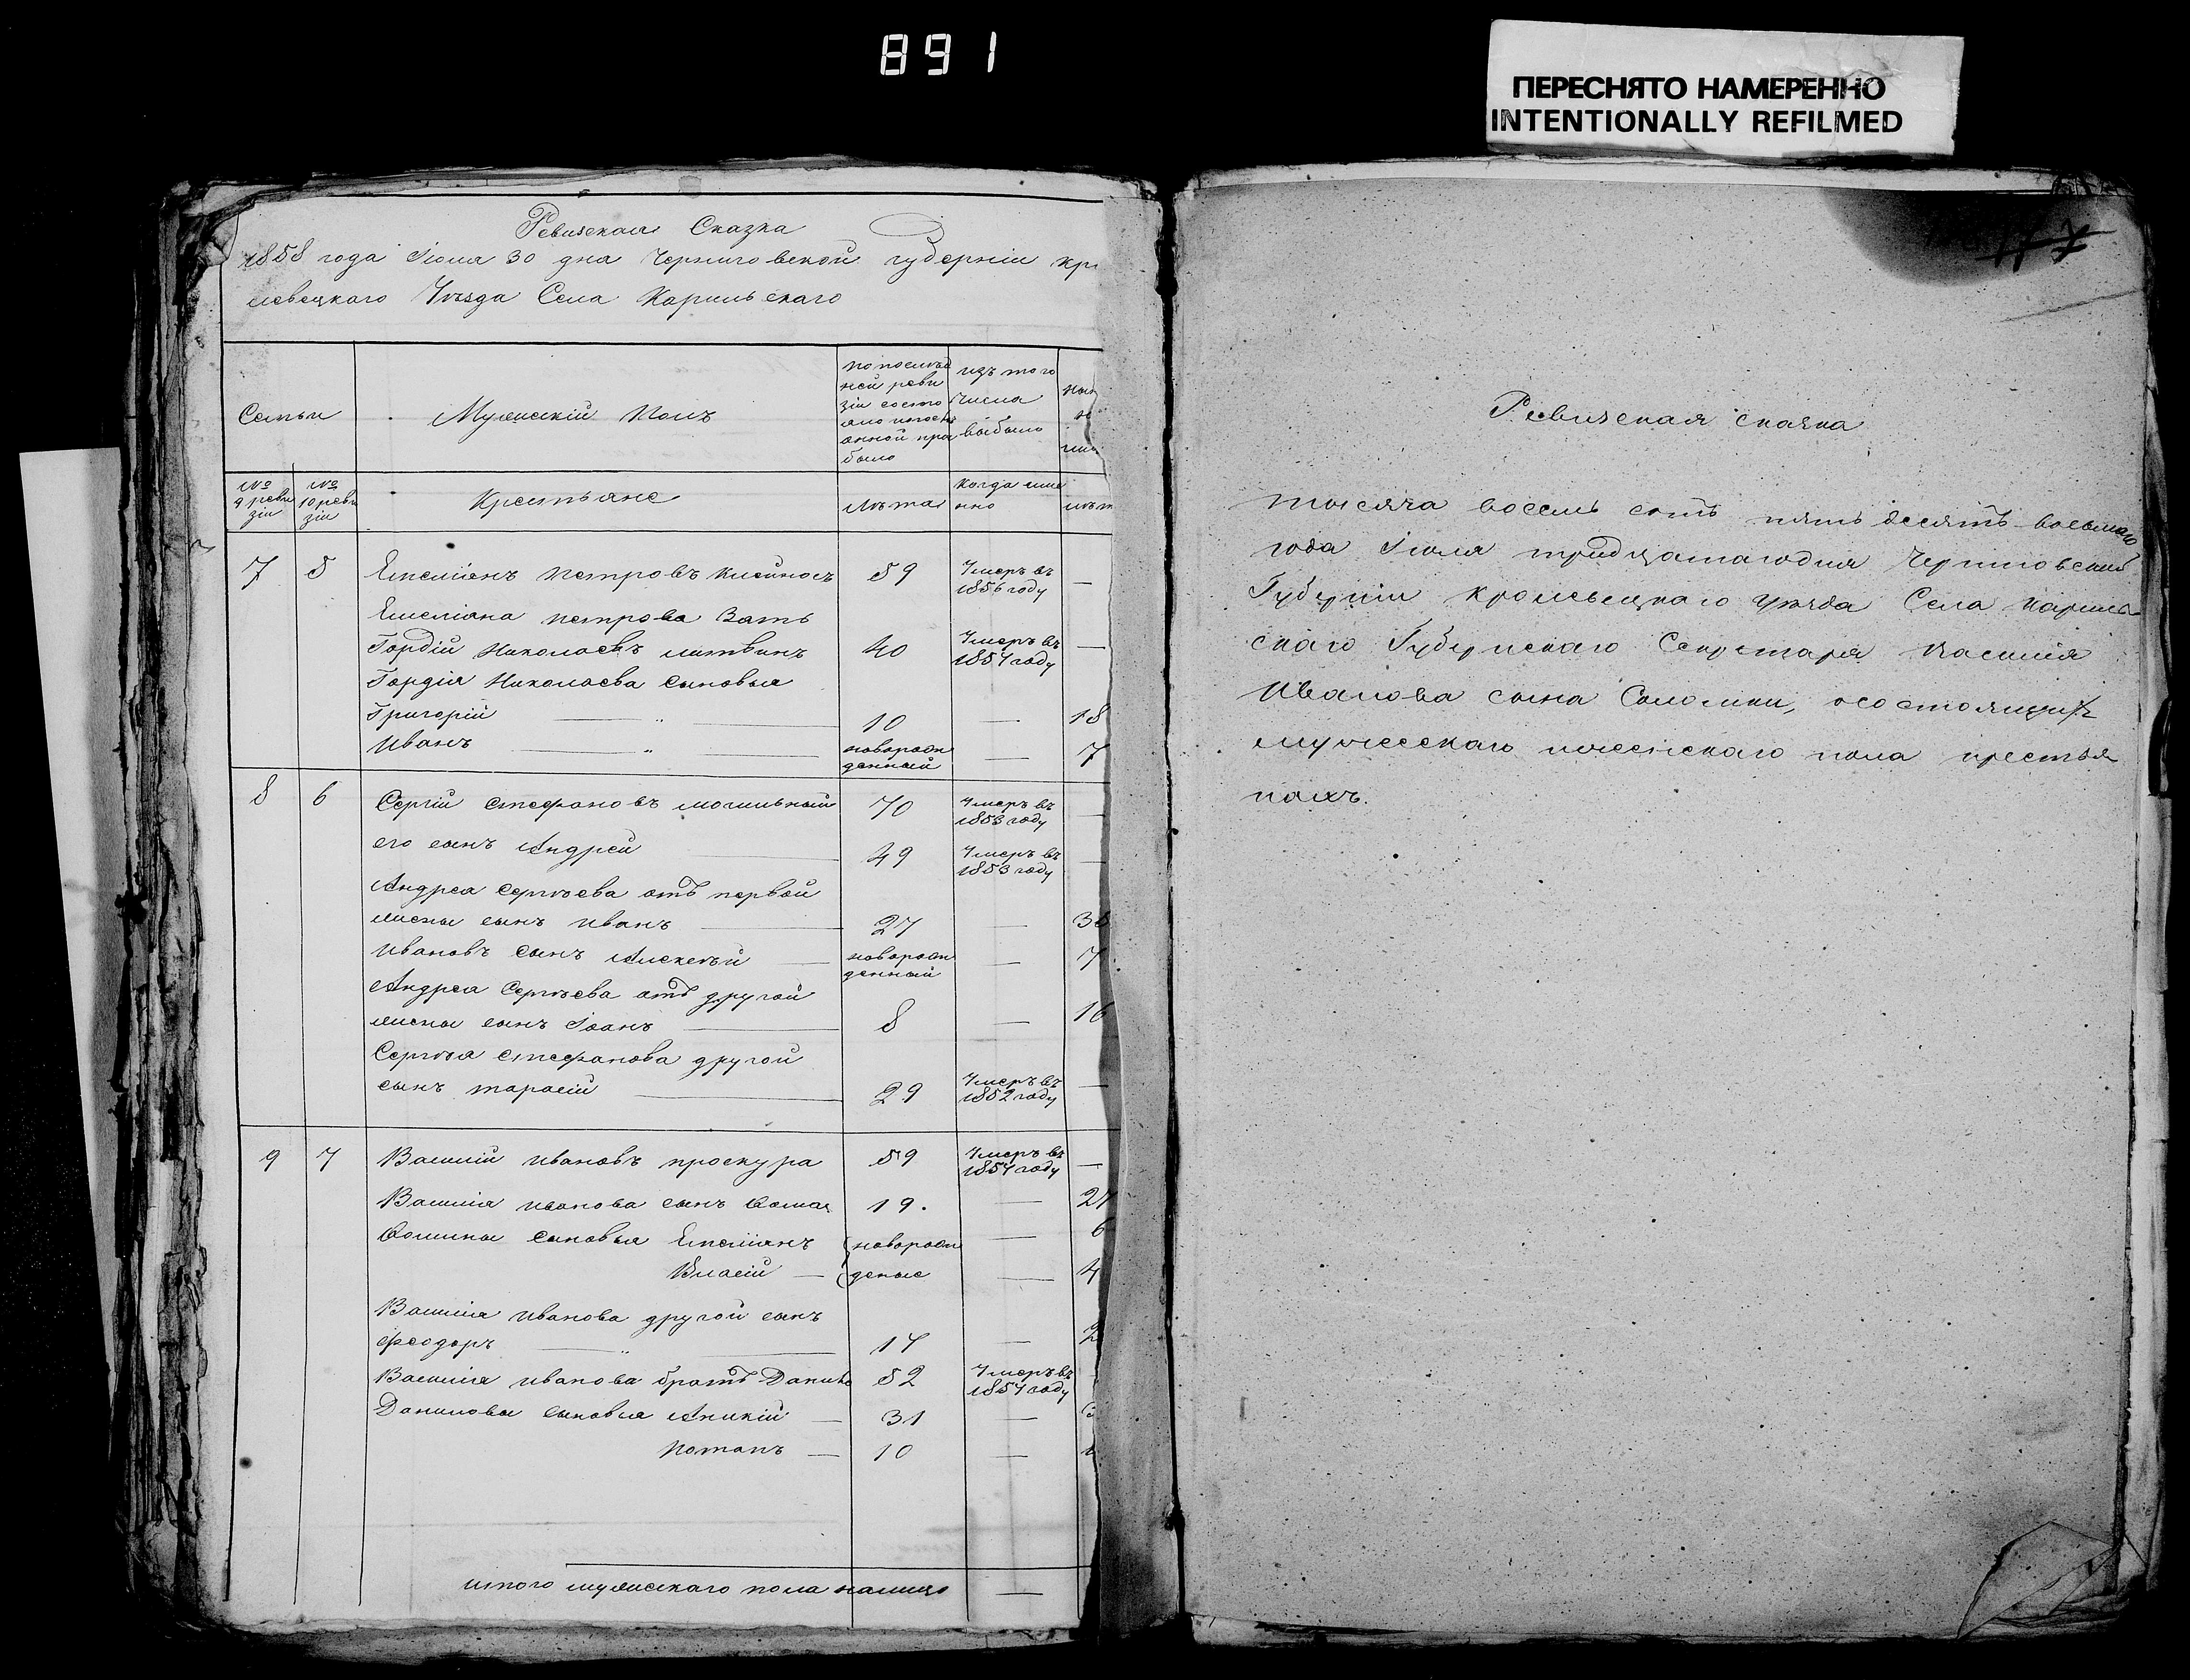 891
ПЕРЕСНЯТО НАМЕРЕННО
INTENTIONALLY REFILMED
Ревизская Сказка
1858 года Июня 30 дня Черниговской губерніи кро
левецкого Уѣзда Села Карильскаго
Семьи
Мужискій Полъ
по послѣд
ней реви
зіи состо
яло
было
изъ того
числа
выбыло
№ 9 реви
зіи
№ 10 реви
зіи
Крестьяне
лѣта
когда име
нно
лѣт
7 5 Емеліянъ петровъ 59 Умеръ въ
1856 году —
Емеліяна петрова Зать
Гордій Николаевъ литвинъ 40 Умеръ въ
1857 году —
Гордія Николаева сыновья
Григорій — „ — 10 — 18
Иванъ — „ — новорож
денный — 7
8 6 Сергій стефановъ могильный 70 Умеръ въ
1853 году —
его сынъ Андрей — 49 Умеръ въ
1853 году —
Андрея Сергѣева отъ первой
жены сынъ иванъ — 27 —
ивановъ сынъ Алексѣй — новорож
денный — 7
Андрея Сергѣева отъ другой
жены сынъ Іоанъ — 8 — 16
Сергѣя стефанова другой
сынъ тарасій — 29 Умеръ въ
1852 году —
9 7 Василій ивановъ проскура 59 Умеръ въ
1857 году —
Василія иванова сынъ Фома 19. — 27
Фомины сыновья Емеліянъ новорож — 6
Власій — деные — 4
Василія иванова другой сынъ
феодоръ — „ — 17 — 2
Василія иванова братъ Данило 52 Умеръ въ
1857 году
Даниловы сыновья Аникій — 31 —
потапъ — 10 —
итого мужискаго пола налицо —
Ревизская сказка
тысяча восемь сотъ пять десятъ восьмаго
года Іюля тридцатагодня Черниговской
Губерніи кролевецкаго уѣзда Села кариль
скаго Губернскаго Секретаря Василія
Иванова сына Соломки, осостоящихъ
мужескаго иженскаго пола крестья
нахъ.